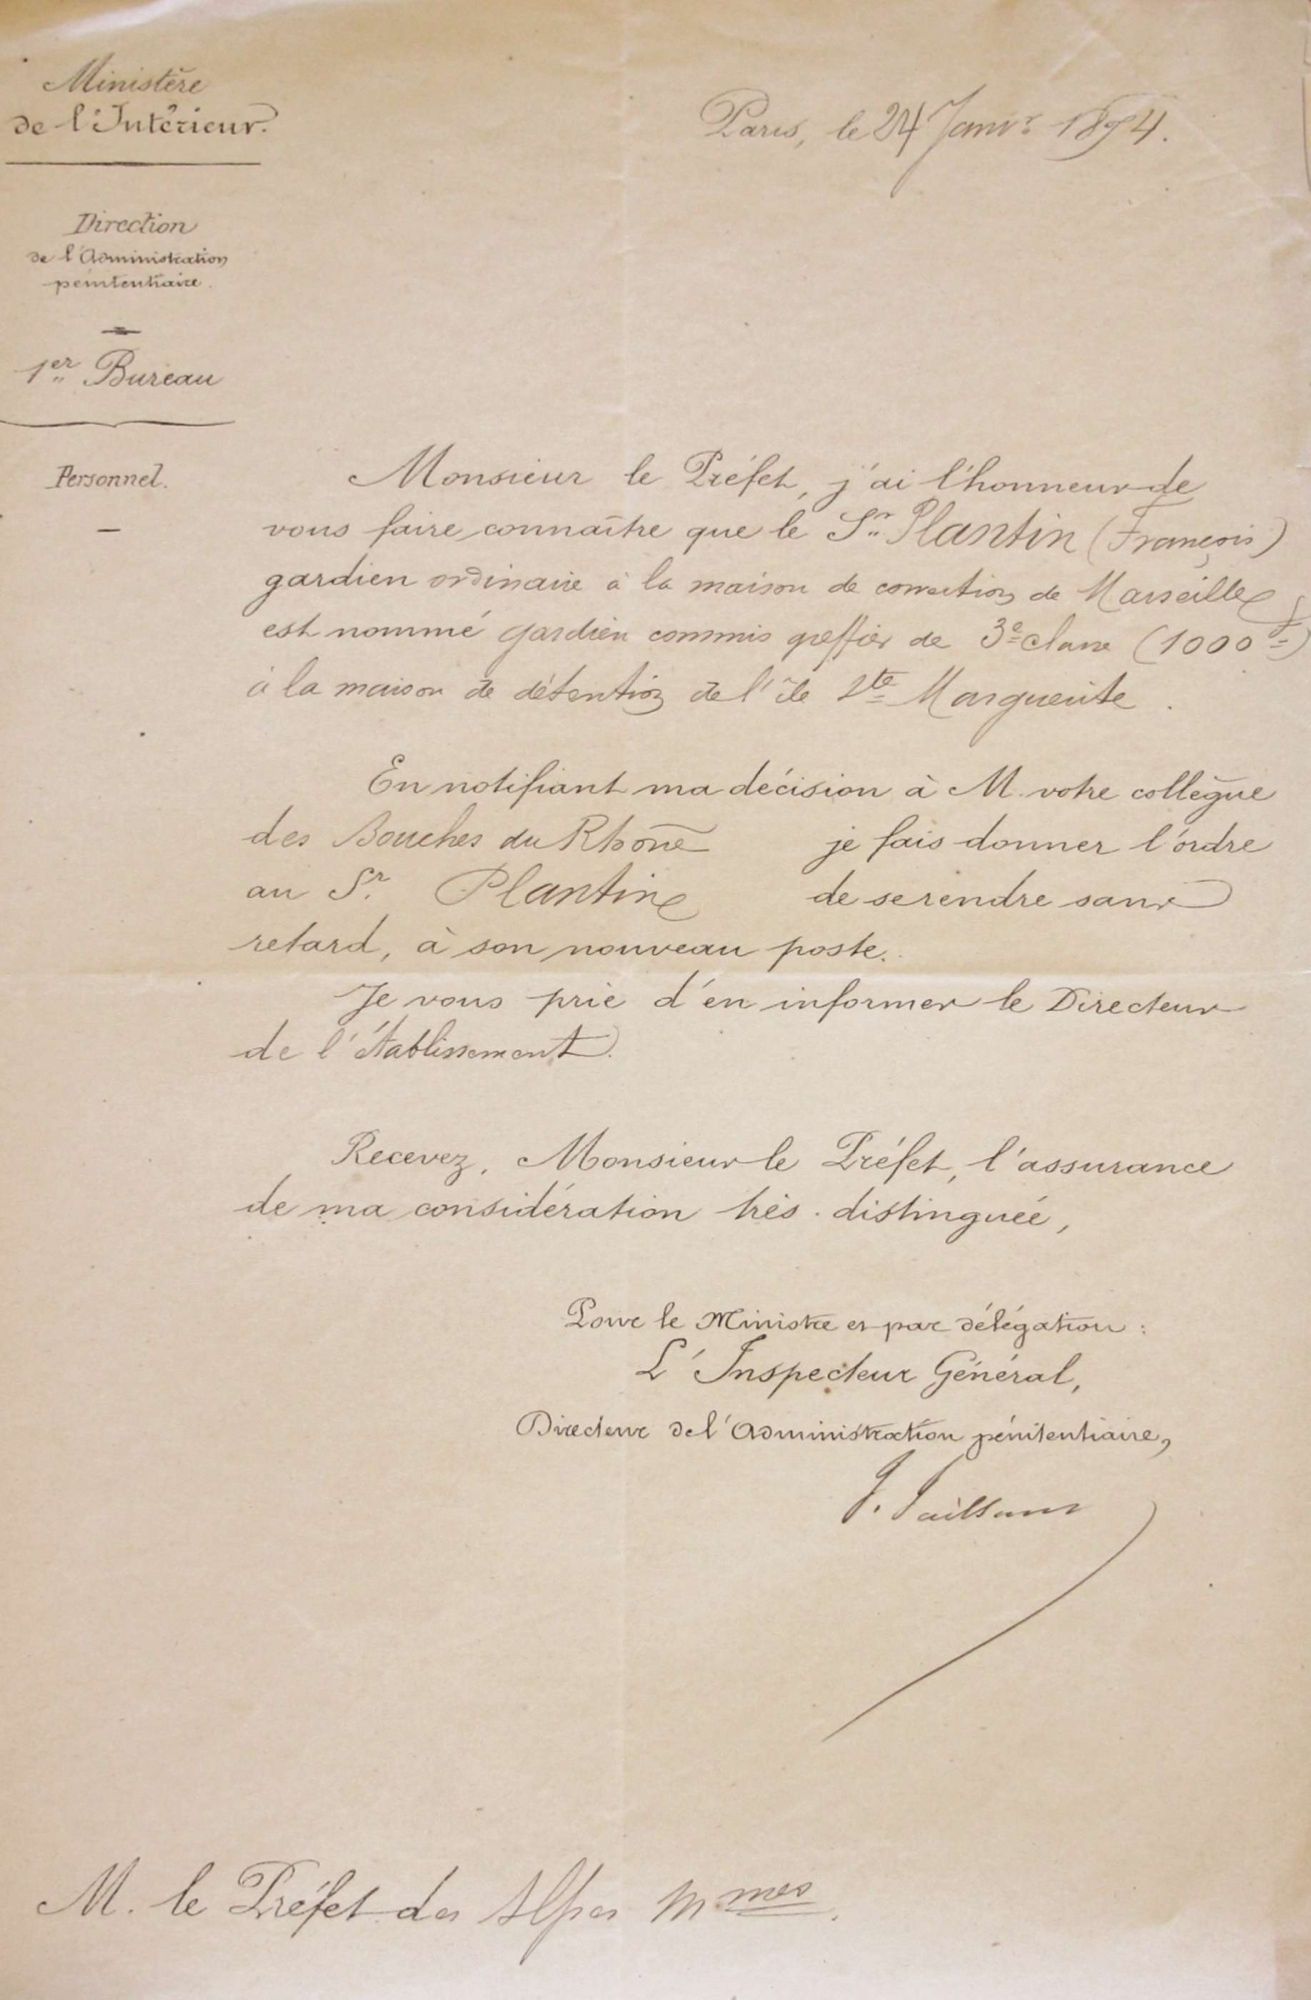 Ministère
de l'Intérieur.
Paris, le 24 Janvr 1874.
Direction
de l'Administration
pénitentiaire.
1er Bureau
Personnel.
Monsieur le Préfet, j'ai l'honneur de
vous faire connaître que le Sr Plantin (François)
gardien ordinaire à la maison de correction de Marseille
est nommé gardien commis greffier de 3e classe (1000 f)
à la maison de détention de l'île Ste Marguerite.
En notifiant ma décision à M. votre collègue
des Bouches du Rhône je fais donner l'ordre
au Sr. Plantin de se rendre sans
retard, à son nouveau poste.
Je vous prie d'en informer le Directeur
de l'établissement.
Recevez, Monsieur le Préfet, l'assurance
de ma considération très distinguée,
Pour le Ministre et par délégation:
L'Inspecteur Général,
Directeur de l'Administration pénitentiaire,
J. Jaillant
M. le Préfet des Alpes Mmes.